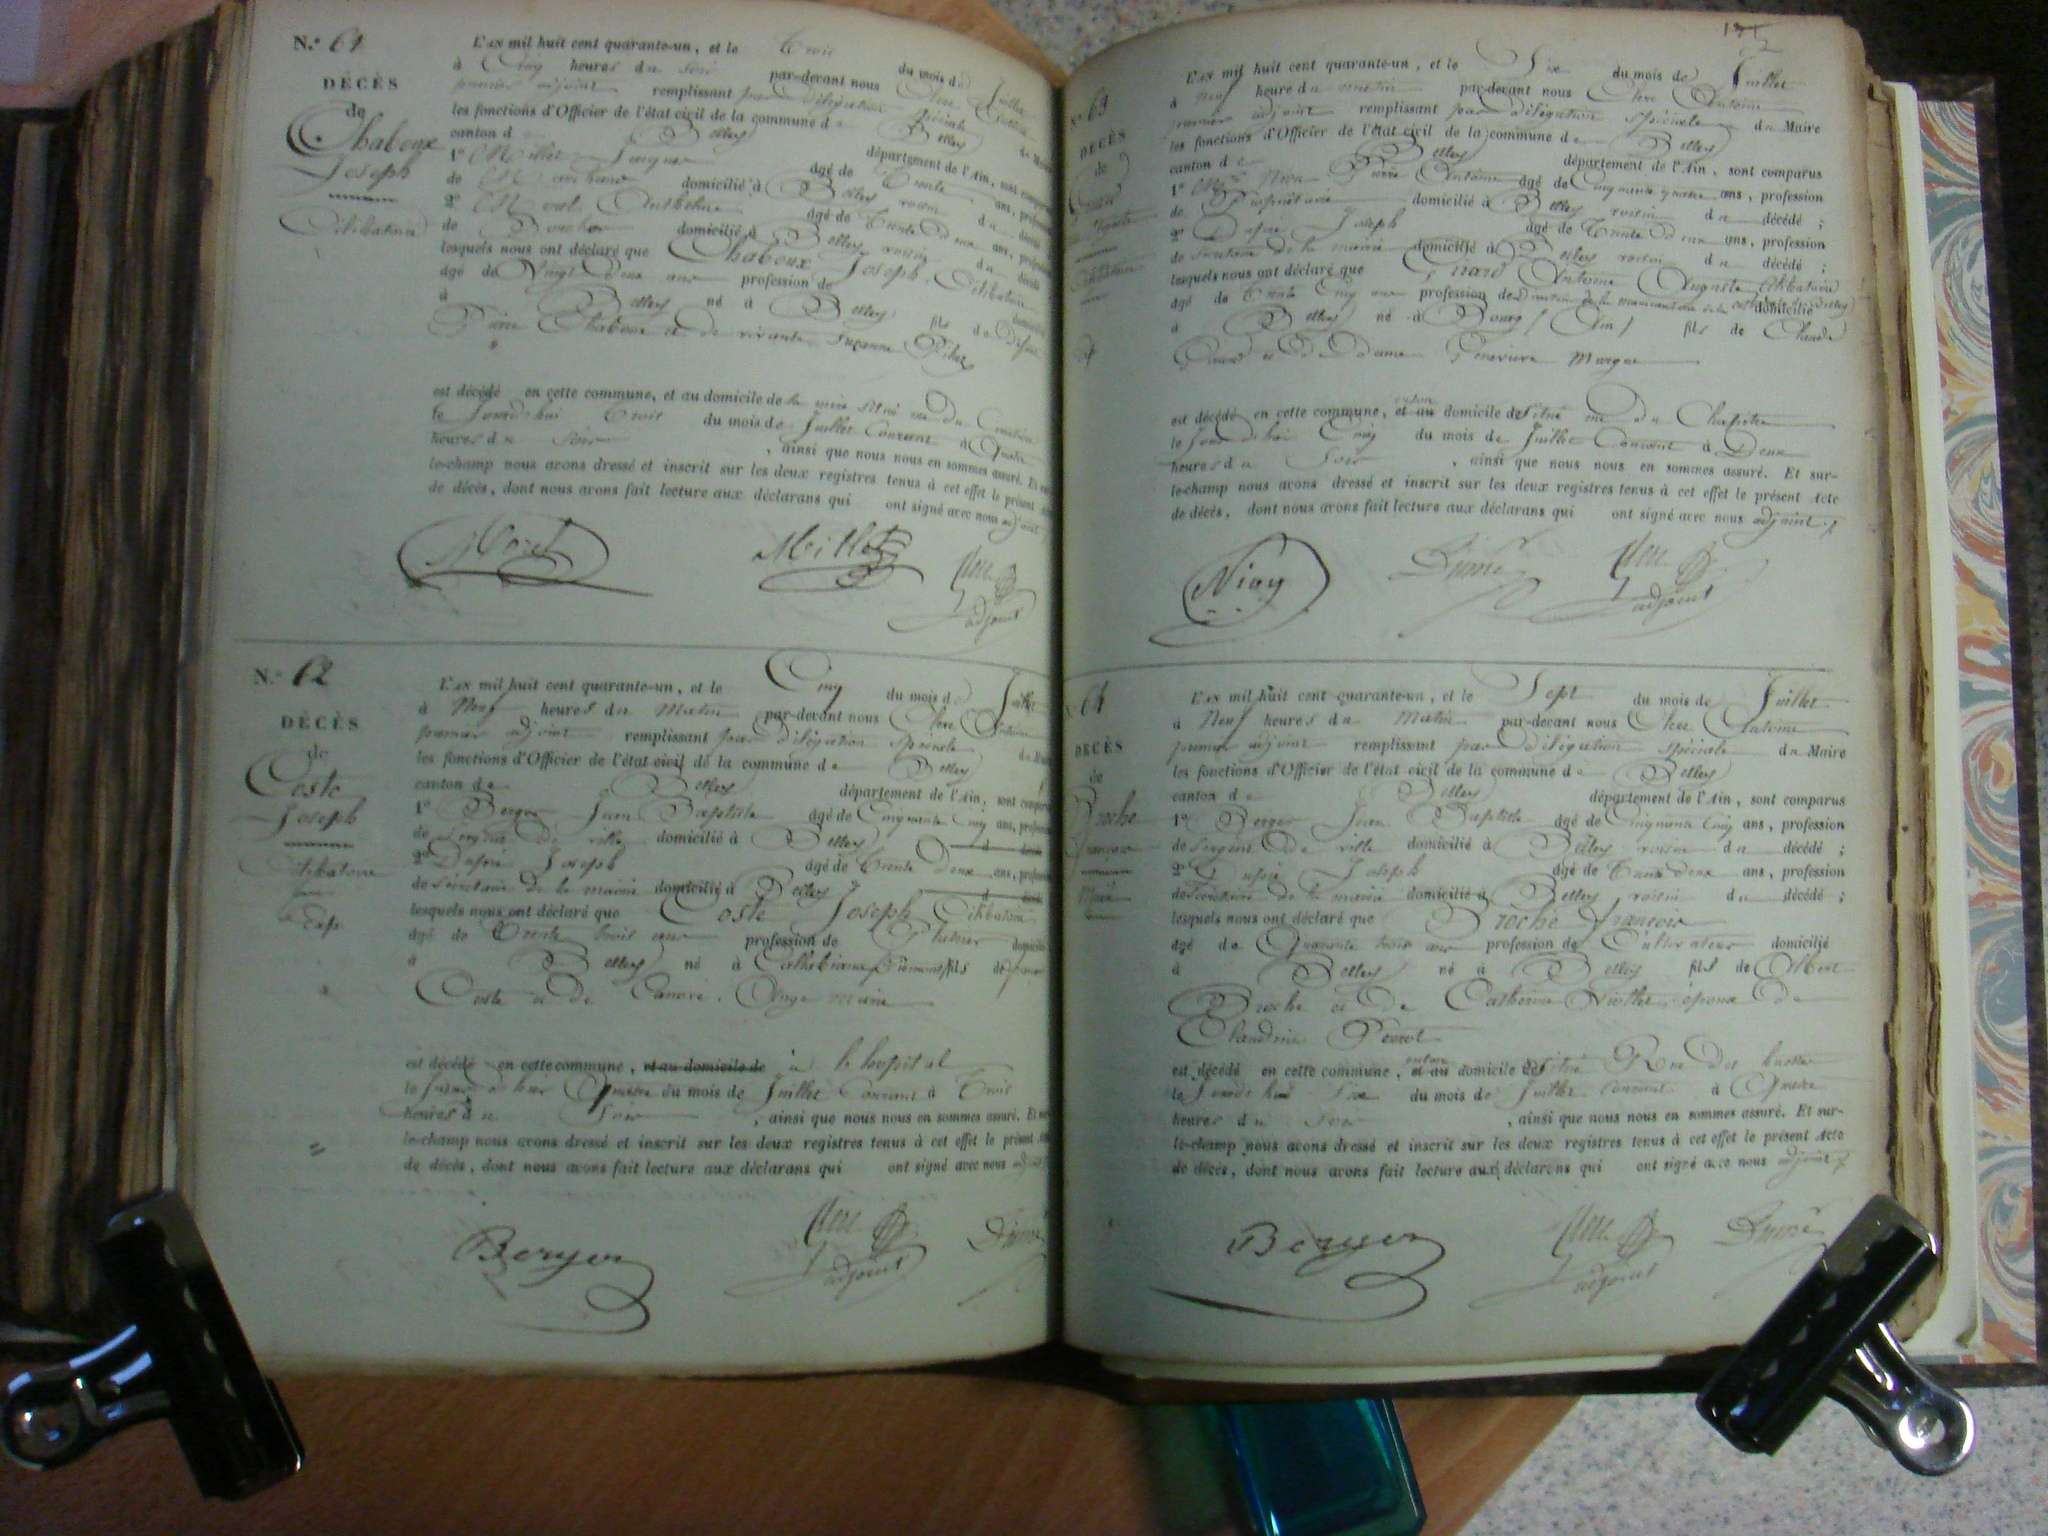 N.º 61
DÉCÈS
de
Chaboux
Joseph
Célibataire
L'AN mil huit cent quarante-un, et le Trois du mois de Juillet
à Cinq heures du soir par-devant nous Clerc Antoine
premier adjoint remplissant par délégation spéciale du Maire
les fonctions d'Officier de l'état civil de la commune de Belley
canton de Belley département de l'Ain, sont comparus
1º Millet Jacques âgé de Trente ans, profession
de domicilié à Belley voisin du décédé
2º Anthelme âgé de Trente deux ans, profession
de domicilié à Belley voisin du décédé
lesquels nous ont déclaré que Chaboux Joseph, Célibataire
âgé de Vingt deux ans profession de domicilié
à Belley né à Belley fils de défunt
Pierre Chaboux et de vivante Suzanne
est décédé en cette commune, et au domicile de sa mère situé rue du
le Jourd'hui Trois du mois de Juillet Courant à Quatre
heures du Soir , ainsi que nous nous en sommes assuré. Et sur-
le-champ nous avons dressé et inscrit sur les deux registres tenus à cet effet le présent Acte
de décès, dont nous avons fait lecture aux déclarans qui ont signé avec nous adjoint
Millet
Clerc
adjoint
N.º 62
DÉCÈS
de
Coste
Joseph
Célibataire
L'AN mil huit cent quarante-un, et le Cinq du mois de Juillet
à Neuf heures du Matin par-devant nous Clerc Antoine
premier adjoint remplissant par délégation spéciale du Maire
les fonctions d'Officier de l'état civil de la commune de Belley
canton de Belley département de l'Ain, sont comparus
1º Berger Jean Baptiste âgé de Cinquante Cinq ans, profession
de Sergent de ville domicilié à Belley
2º Dupré Joseph âgé de Trente Deux ans, profession
de Secrétaire de la mairie domicilié à Belley
lesquels nous ont déclaré que Coste Joseph Célibataire
âgé de Trente trois ans profession de domicilié
à Belley né à (Piémont) fils de
Coste et de Ange Marie
est décédé en cette commune, et au domicile de à l'hopital
le Jour d'hier Quatre du mois de Juillet Courant à Trois
heures du Soir , ainsi que nous nous en sommes assuré. Et sur-
le-champ nous avons dressé et inscrit sur les deux registres tenus à cet effet le présent Acte
de décès, dont nous avons fait lecture aux déclarans qui ont signé avec nous adjoint
Berger
Clerc
adjoint
Dupré
63
DÉCÈS
de
L'AN mil huit cent quarante-un, et le Six du mois de Juillet
à neuf heure du matin par-devant nous Clerc Antoine
premier adjoint remplissant par délégation spéciale du Maire
les fonctions d'Officier de l'état civil de la commune de Belley
canton de Belley département de l'Ain, sont comparus
1º Pierre Antoine âgé de Cinquante quatre ans, profession
de Propriétaire domicilié à Belley voisin du décédé ;
2º Dupré Joseph âgé de Trente deux ans, profession
de Secrétaire de la mairie domicilié à Belley voisin du décédé ;
lesquels nous ont déclaré que Antoine Auguste Célibataire
âgé de Trente Cinq ans profession de domicilié
à Belley né à Bourg (Ain) fils de Claude
et de Dame Geneviève
est décédé en cette commune, et au domicile de situé rue du Chapitre
le Jour d'hier Cinq du mois de Juillet Courant à Deux
heures du Soir , ainsi que nous nous en sommes assuré. Et sur-
le-champ nous avons dressé et inscrit sur les deux registres tenus à cet effet le présent Acte
de décès, dont nous avons fait lecture aux déclarans qui ont signé avec nous adjoint
Dupré
Clerc
adjoint
64
DÉCÈS
de
Broche
François
L'AN mil huit cent quarante-un, et le Sept du mois de Juillet
à Neuf heures du Matin par-devant nous Clerc Antoine
premier adjoint remplissant par délégation spéciale du Maire
les fonctions d'Officier de l'état civil de la commune de Belley
canton de Belley département de l'Ain, sont comparus
1º Berger Jean Baptiste âgé de Cinquante Cinq ans, profession
de Sergent de ville domicilié à Belley voisin du décédé ;
2º Dupré Joseph âgé de Trente deux ans, profession
de Secrétaire de la mairie domicilié à Belley voisin du décédé ;
lesquels nous ont déclaré que Broche François
âgé de Quarante trois ans profession de Cultivateur domicilié
à Belley né à Belley fils de Albert
Broche et de Catherine époux de
Claudine
est décédé en cette commune, et au domicile de situé Rue des
le Jourd'hier Six du mois de Juillet courant à Quatre
heures du Soir , ainsi que nous nous en sommes assuré. Et sur-
le-champ nous avons dressé et inscrit sur les deux registres tenus à cet effet le présent Acte
de décès, dont nous avons fait lecture aux déclarans qui ont signé avec nous adjoint
Berger
Clerc
adjoint
Dupré